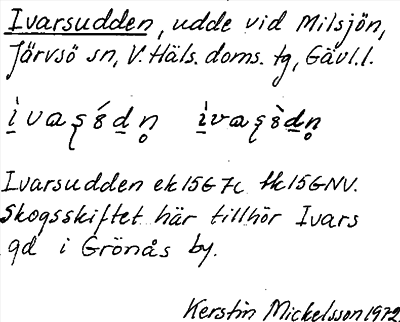 Ivarsudden, udde vid Milsjön,
Järvsö sn, V. Häls. doms. tg, Gävl. l.
Ivarsudden ek 15G7c tk 15GNV.
Skogsskiftet här tillhör Ivars
gd i Grönås by.
Kerstin Mickelsson 1972